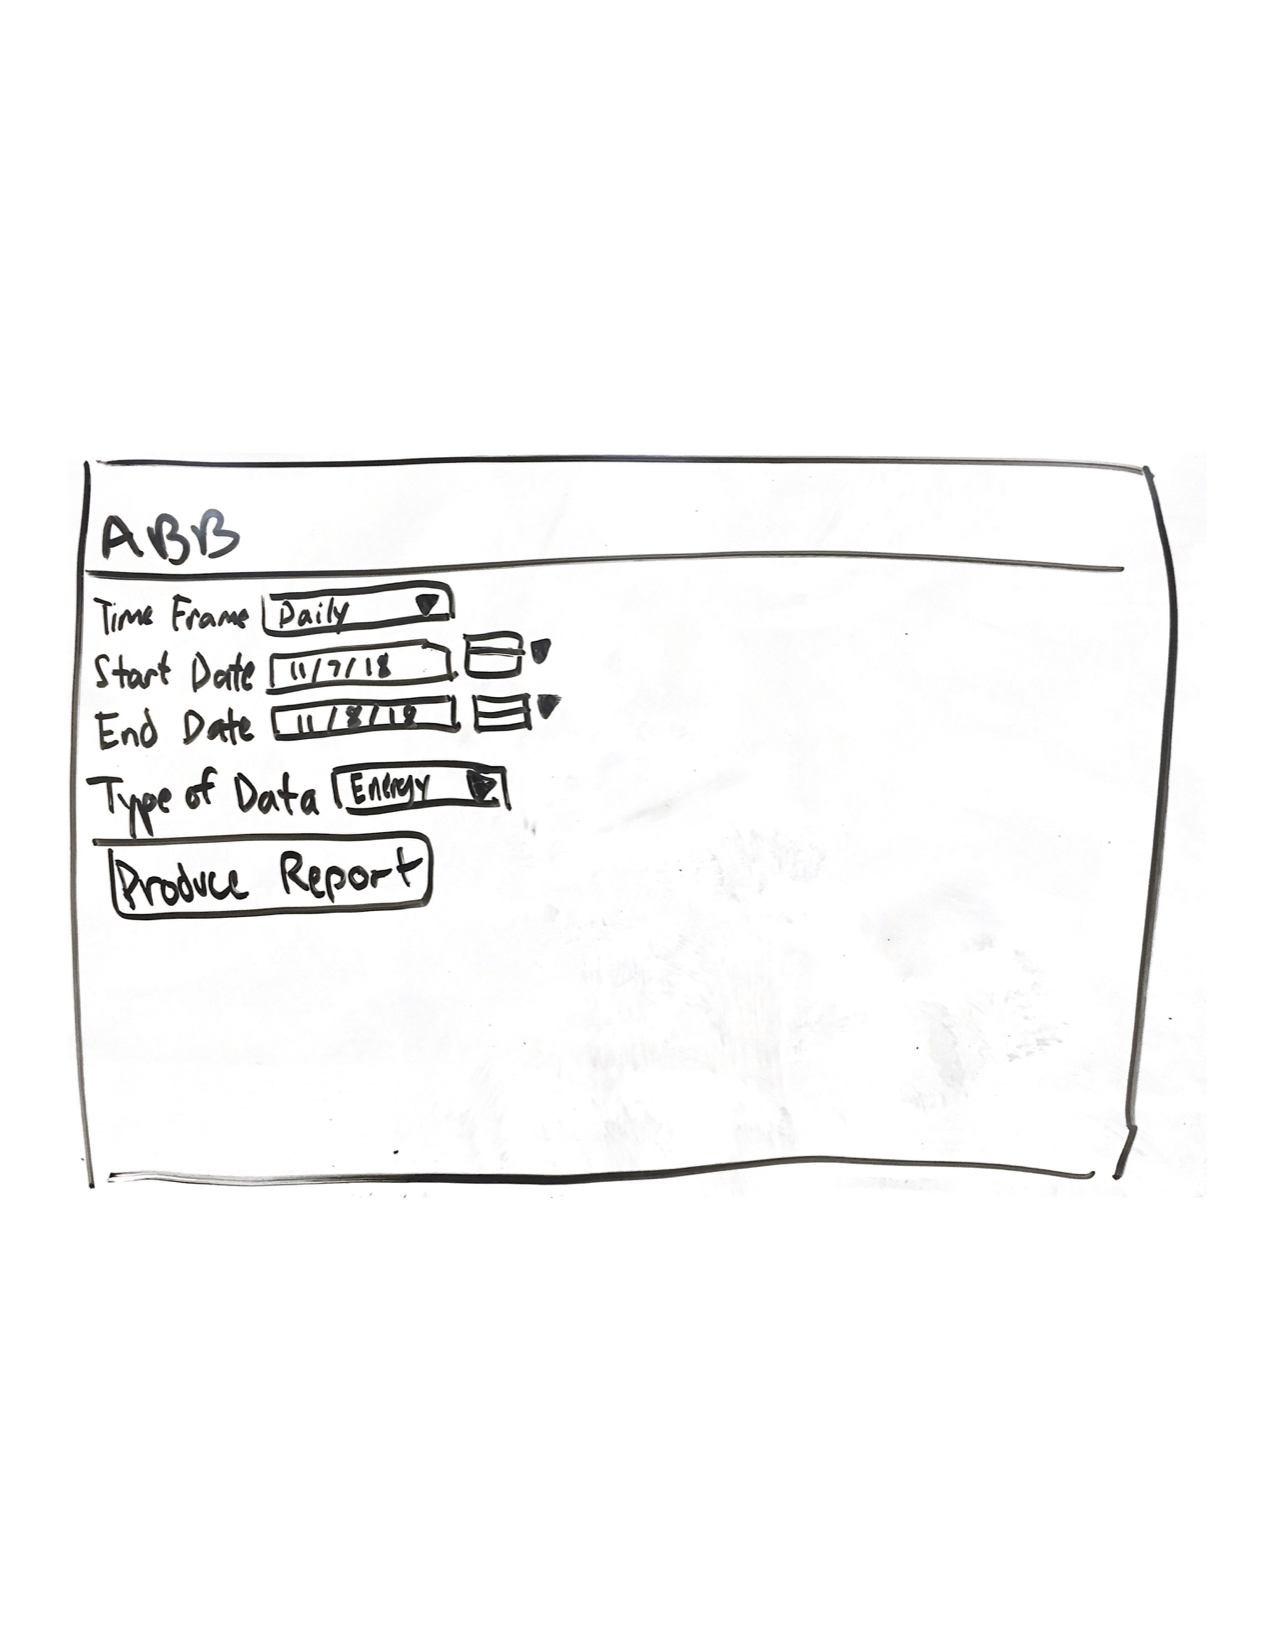 ABB
Time Frame Daily
Start Date 11/7/18
End Date 11/8/18
Type of Data Energy
Produce Report